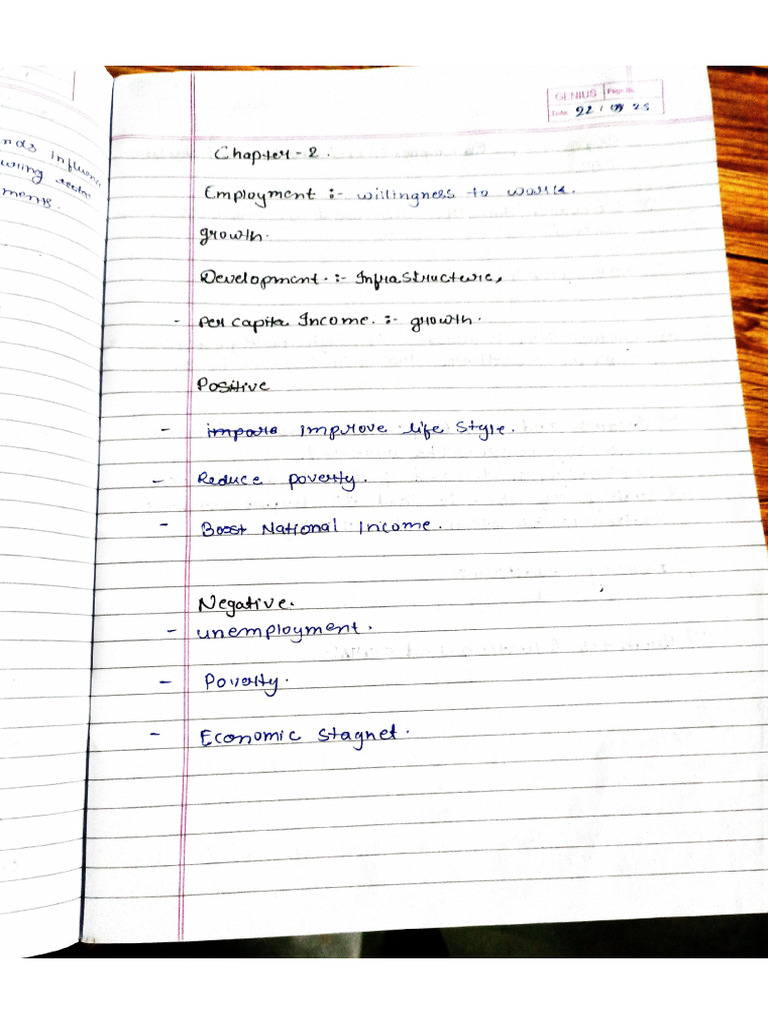 nds influenc
ments.
GENIUS Page No.
Date 22 / 09 25
Chapter-2.
Employment :- willingness to work.
growth.
Development. :- Infrastructure,
- Per capita Income. :- growth.
Positive
- impors improve life style.
- Reduce poverty.
- Boost National Income.
Negative.
- unemployment.
- Poverty.
- Economic stagnet.